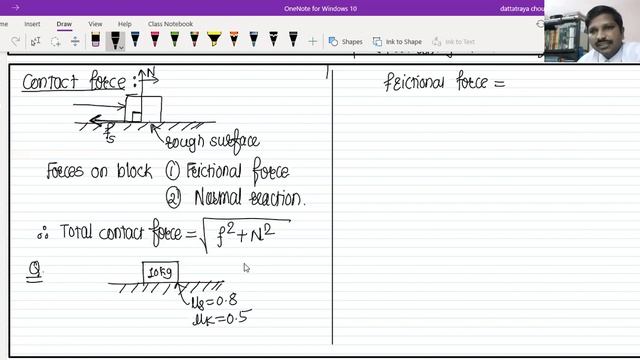 OneNote for Windows 10
dattatraya chou
File Home Insert Draw View Help Class Notebook
Shapes Ink to Shape Ink to Text
Contact force :
N
fs
rough surface
Forces on block ① Frictional force
② Normal reaction.
∴ Total contact force = √f²+N²
Q.
10kg
μs = 0.8
μk = 0.5
Frictional force =